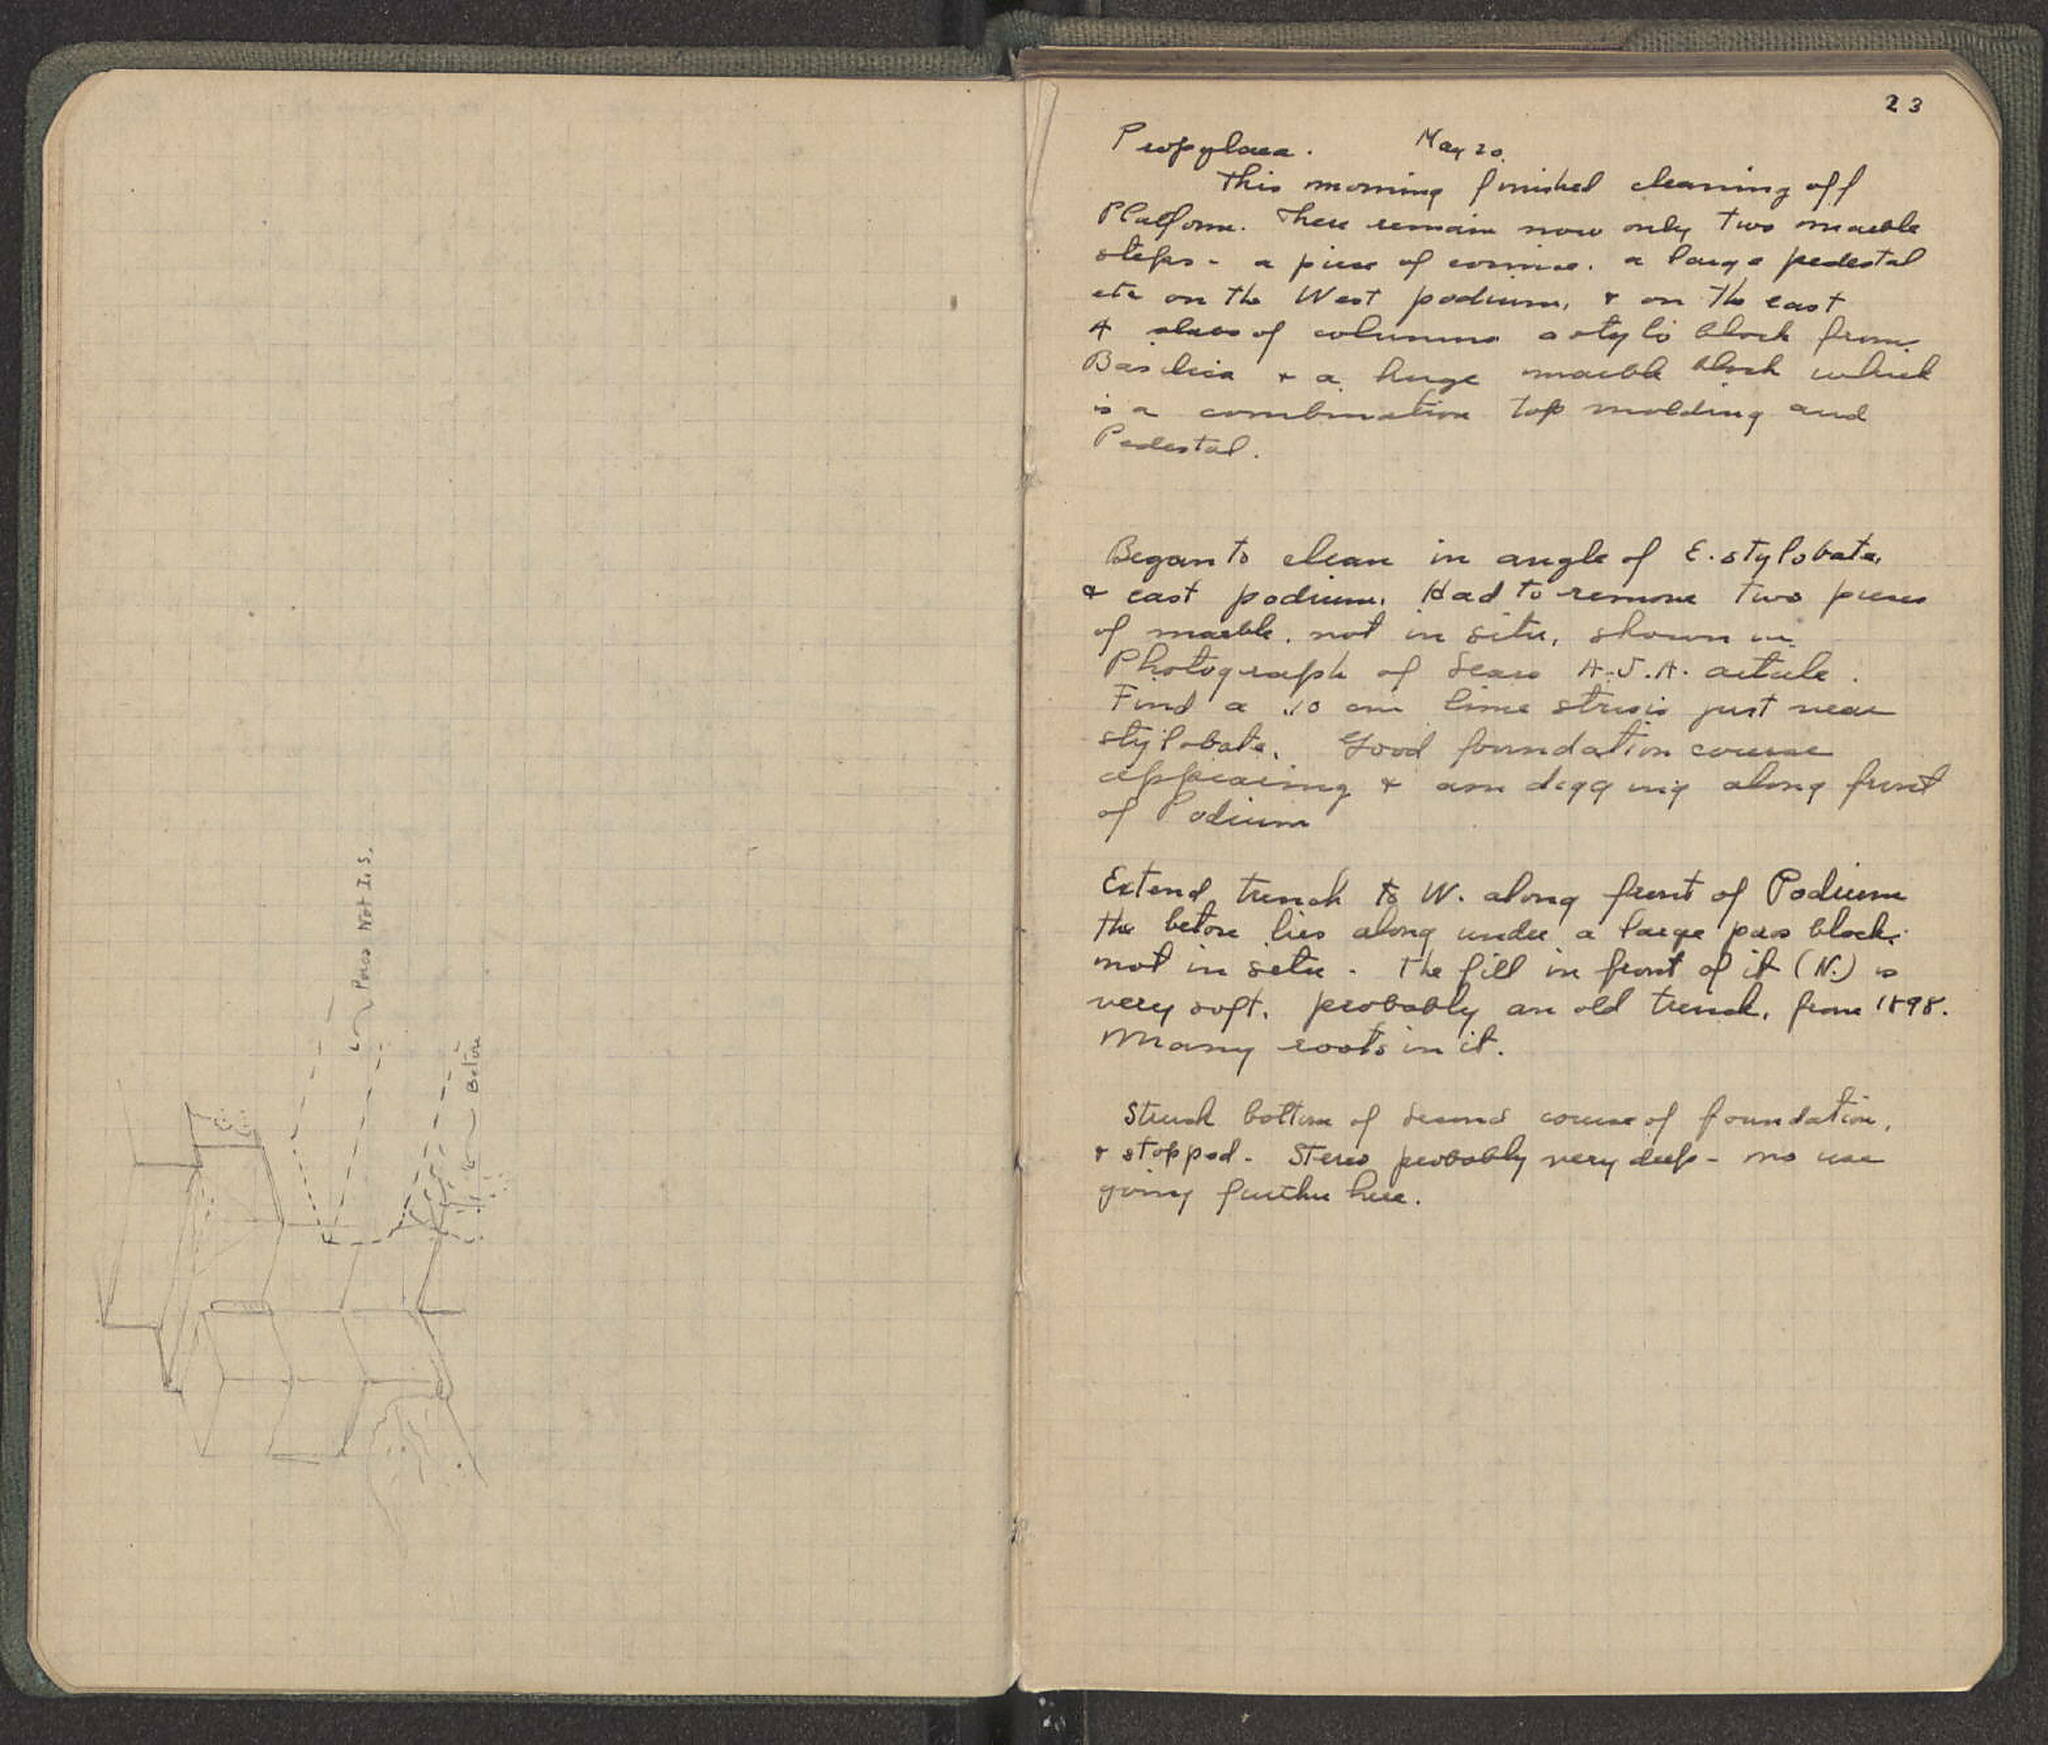 Poros Not I.S.
Beton
23
Propylaea. May 20.
This morning finished cleaning off
Platform. There remain now only two marble
steps - a piece of cornice. a large pedestal
etc on the West podium, & on the east
4 of columns a stylo block from
Basilica & a huge marble block which
is a combination top molding and
Pedestal.
Began to clean in angle of E. stylobate,
& east podium. Had to remove two pieces
of marble, not in situ, shown in
Photograph of Sears A.J.A. article.
Find a .10 cm lime strosis just near
stylobate. Good foundation course
appearing & am digging along front
of Podium
Extend trench to W. along front of Podium
the beton lies along under a large poros block.
not in situ - The fill in front of it (N.) is
very soft, probably an old trench, from 1898.
Many roots in it.
Struck bottom of second course of foundation,
& stopped - Stereo probably very deep - no use
going further here.